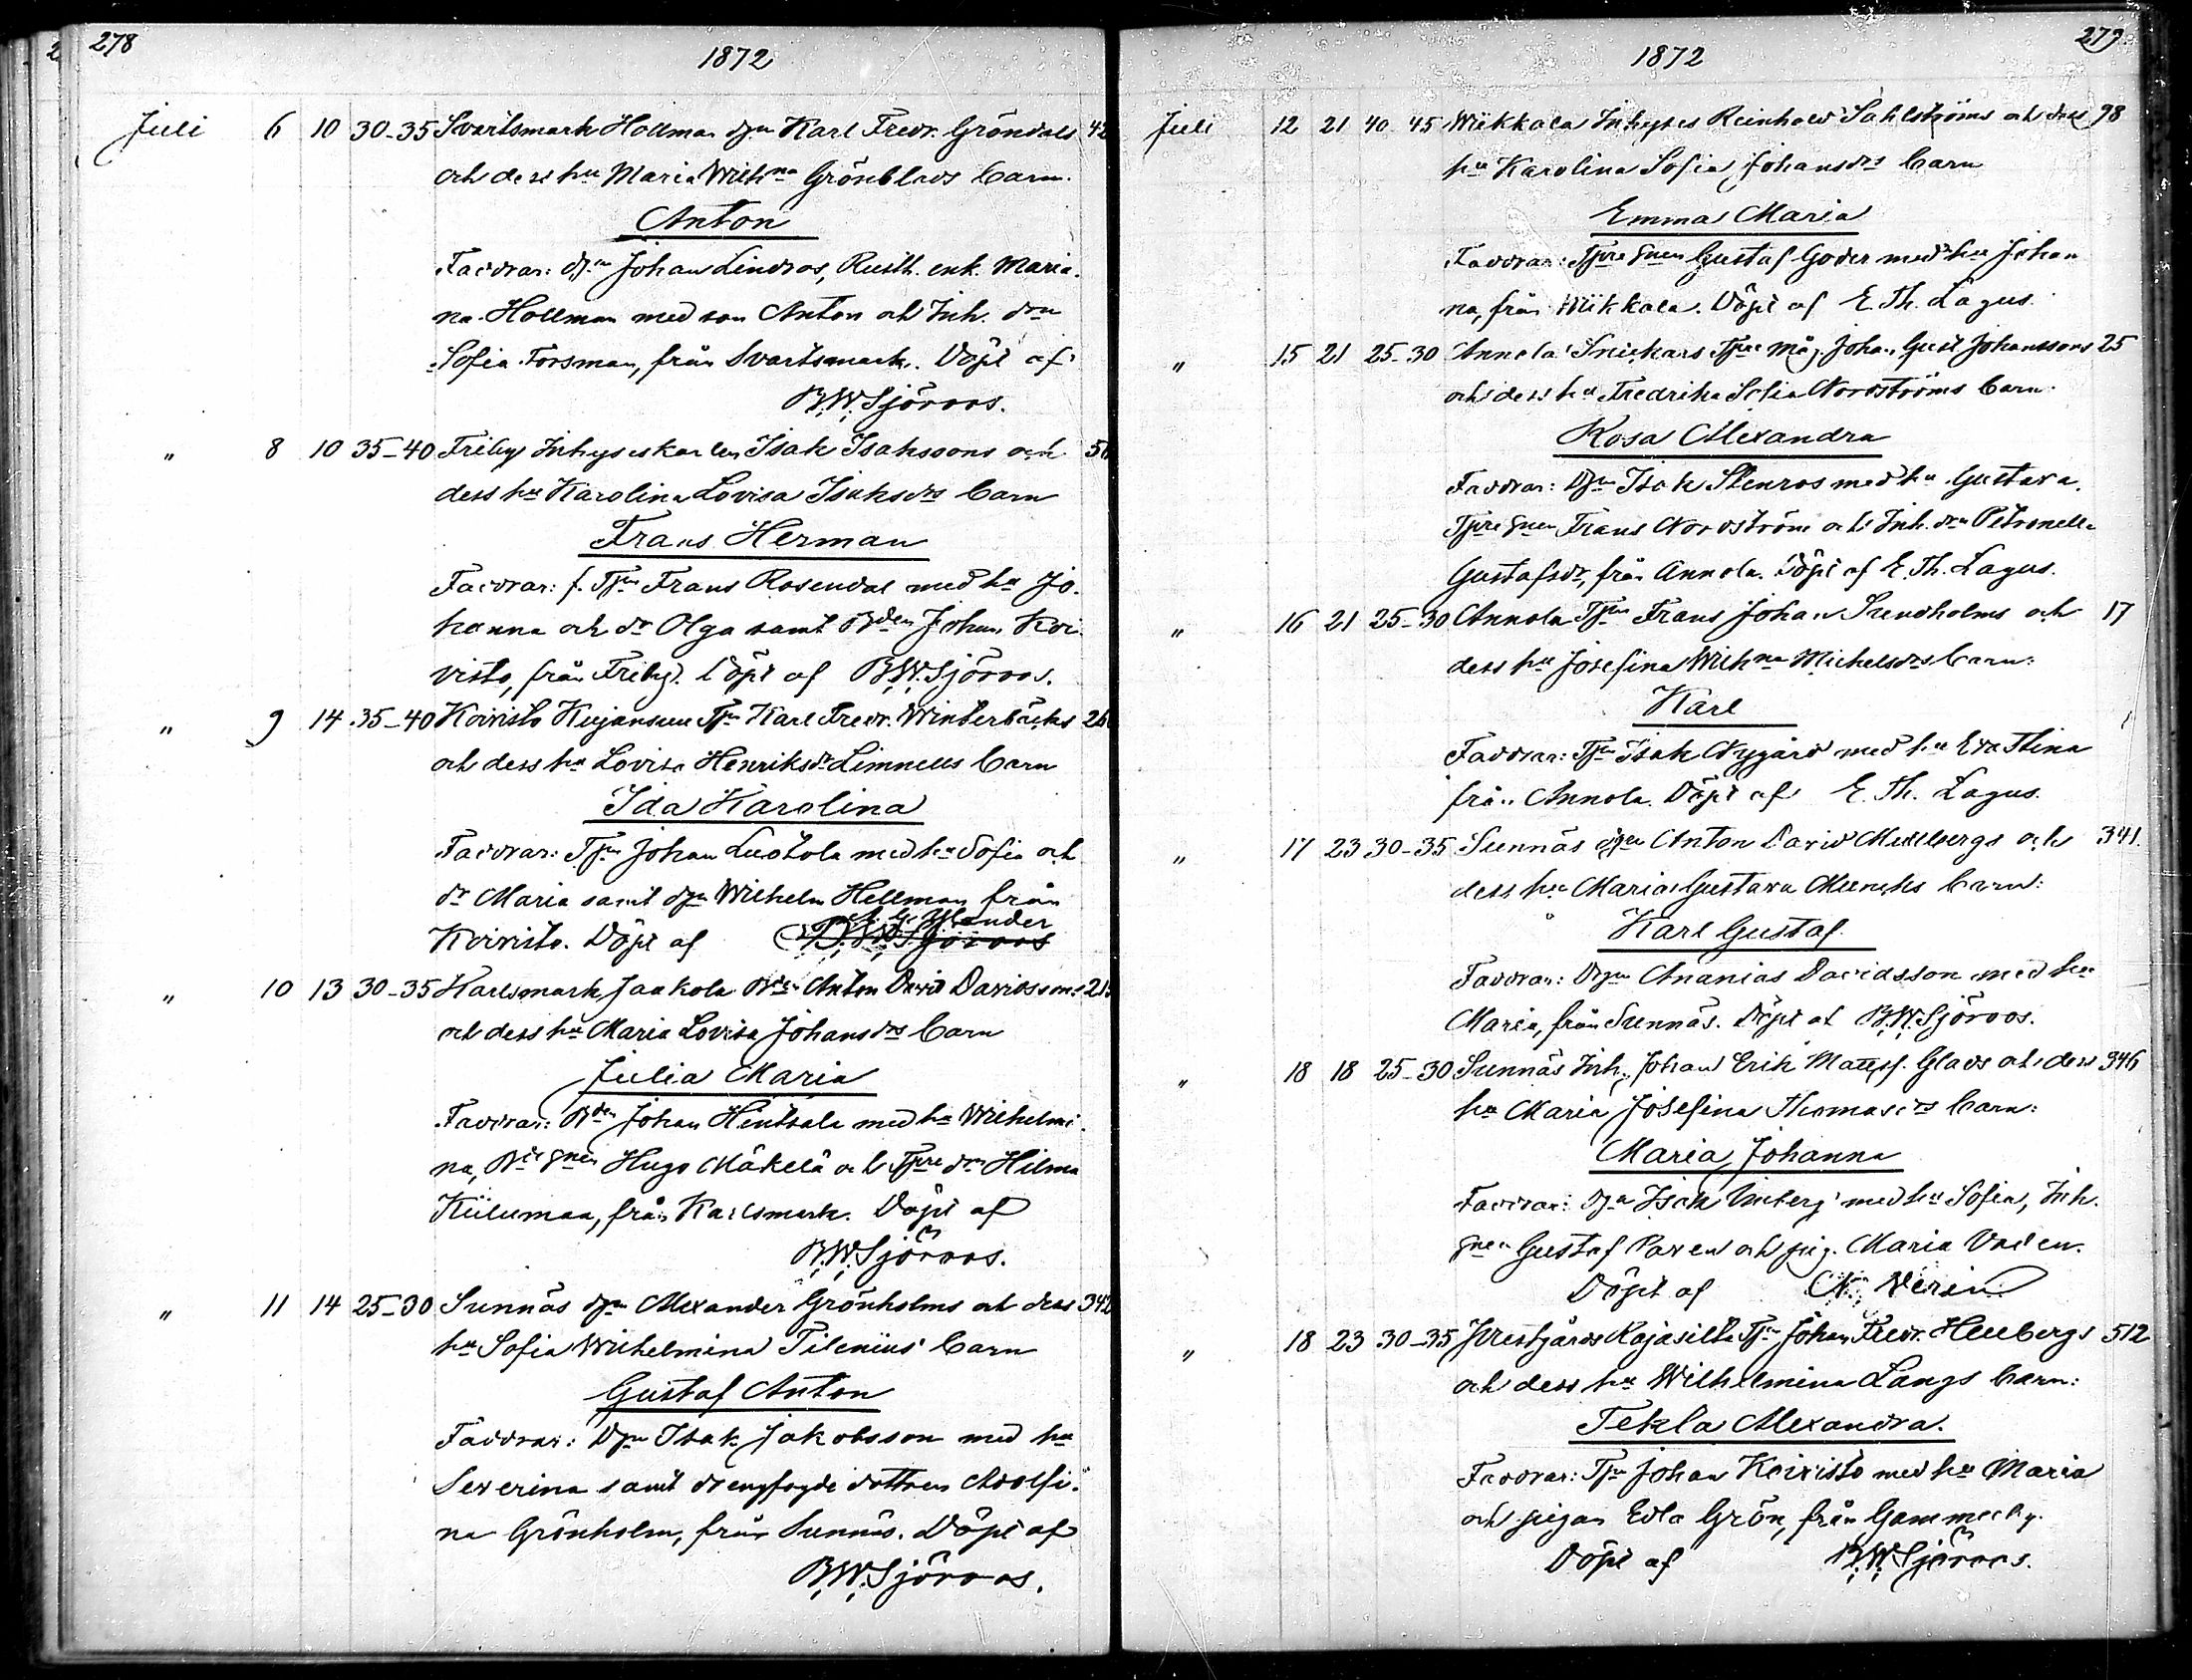 278
1872
Juli 6 10 30-35 Svartsmark Hollman Karl Fredr. Gröndals 42
och dess hu Maria Wilhna Grönblads barn.
Anton
Faddrar: Johan Lindros, Rusth. enk. Maria
na Hollman med son Anton och Inh. drn
Sofia Forsman, från Svartsmark. Döpt af
B.W. Sjöroos.
" 8 10 35-40 Friby Inhyseskarlen Isak Isakssons och
dess hu Karolina Lovisa Isaksdrs barn
Frans Herman
Faddrar: f. Tpn Frans Rosendal med hu Jo-
hanna och dr Olga samt Bden Johan Koi-
visto, från Friby. Döpt af B.W. Sjöroos.
" 9 14 35-40 Koivisto Kujansuu Tpn Karl Fredr. Winterbäcks
och dess hu Lovisa Henriksdr Limnells barn
Ida Karolina
Faddrar: Tpn Johan Luotola med hu Sofia och
dr Maria samt Wilhelm Hellman från
Koivisto. Döpt af B.W. Sjöroos
10 13 30-35 Karlsmark Jaakola Bden Anton David Davidssons
" och dess hu Maria Lovisa Johansdrs barn
Julia Maria
Faddrar: Bden Johan Hintsala med hu Wilhelmi-
na, Hugo Mäkelä och Tpre drn Hilma
Kiilumaa, från Karlsmark. Döpt af
B.W. Sjöroos.
" 11 14 25-30 Sunnäs Alexander Grönholms och dess 342
hu Sofia Wilhelmina Tilenius' barn
Gustaf Anton
Faddrar: Isak Jakobsson med hu
Severina samt drengfogde dottren Adolfi-
na Grönholm, från Sunnäs. Döpt af
B.W. Sjöroos.
279
1872
Juli 12 21 40 45 Wiikkala Inhyses Reinhold Sahlströms och dess 98
hu Karolina Sofia Johansdrs barn
Emma Maria
Faddrar: Tpre Gustaf Goder med hu Johan
na, från Wiikkala. Döpt af E. Th. Lagus.
" 15 21 25-30 Annola Snickars Tpre måg Johan Gust Johanssons 25
och dess hu Fredrika Sofia Nordströms barn.
Rosa Alexandra
Faddrar: Isak Stenros med hu Gustava,
Tpre Frans Nordström och Inh. drn Petronella
Gustafsdr, från Annola. Döpt af E. Th. Lagus.
" 16 21 25-30 Annola Tpn Frans Johan Sundholms och 17
dess hu Josefina Wilhna Michelsdrs barn:
Karl
Faddrar: Tpn Isak Nygård med hu Eva Stina
från Annola. Döpt af E. Th. Lagus.
" 17 23 30-35 Sunnäs Anton David Mellbergs och 341
dess hu Maria Gustava Muncks barn:
Karl Gustaf
Faddrar: Ananias Davidsson med hu
Maria, från Sunnäs. Döpt af B.W. Sjöroos.
" 18 18 25-30 Sunnäs Inh. Johan Erik Mattss. Glads och dess 346
hu Maria Josefina Thomasdrs barn:
Maria Johanna
Faddrar: Isak med hu Sofia, Inh.
Gustaf och pig. Maria
Döpt af
" 18 23 30-35 Prestgårds Rajasilta Tpn Johan Fredr. Hellbergs 512
och dess hu Wilhelmina Langs barn:
Tekla Alexandra.
Faddrar: Tpn Johan Koivisto med hu Maria
och pigan Edla Grön, från Gammelby.
Döpt af B.W. Sjöroos.